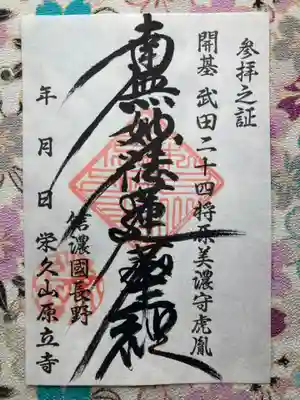 参拝之証
開基 武田二十四将原美濃守虎胤
南無妙法蓮華経
信濃國長野
栄久山原立寺
年 月 日